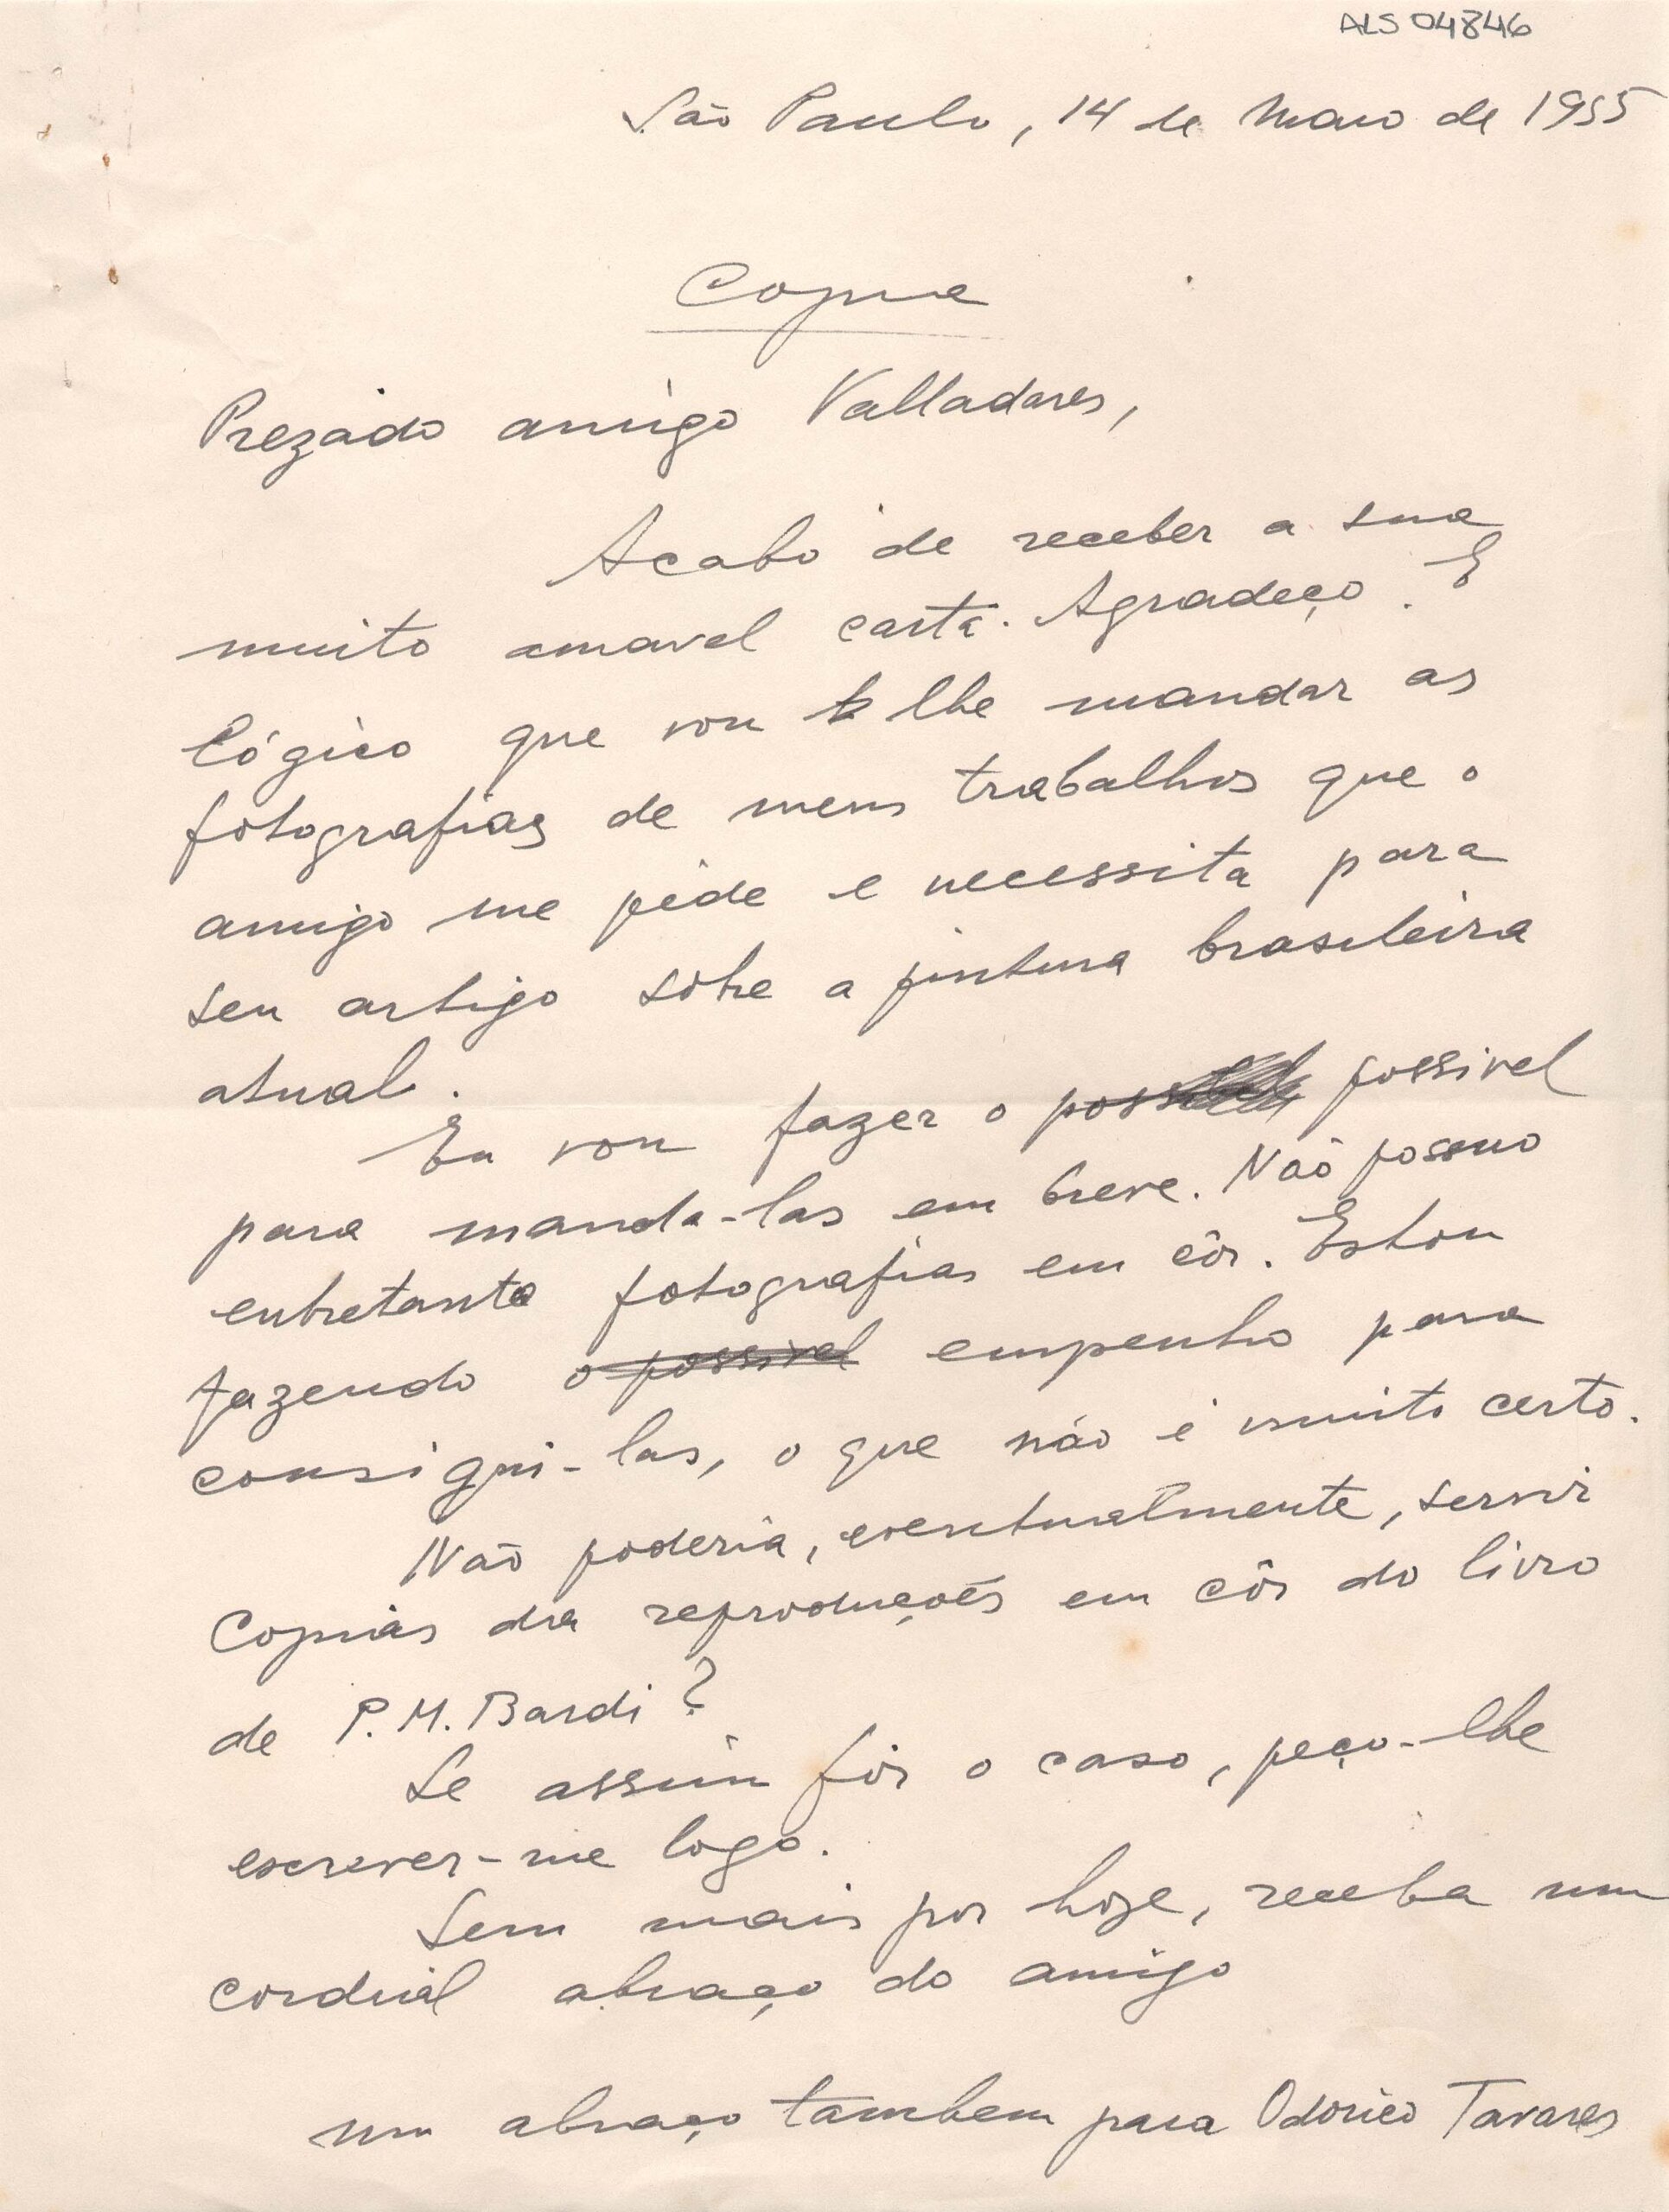 ALS 04846
São Paulo, 14 de Maio de 1955
Copia
Prezado amigo Valladares,
Acabo de receber a sua
muito amavel carta. Agradeço. É
lógico que vou lhe mandar as
fotografias de meus trabalhos que o
amigo me pede e necessita para
seu artigo sôbre a pintura brasileira
atual.
Eu vou fazer o possivel
para manda-las em breve. Não possuo
entretanto fotografias em côr. Estou
fazendo o possivel empenho para
consigui-las, o que não é muito certo.
Não poderia, eventualmente, servir
copias da reproduções em côr do livro
de P. M. Bardi?
Se assim fôr o caso, peço-lhe
escrever-me logo.
Sem mais por hoje, receba um
cordial abraço do amigo
um abraço tambem para Odorico Tavares